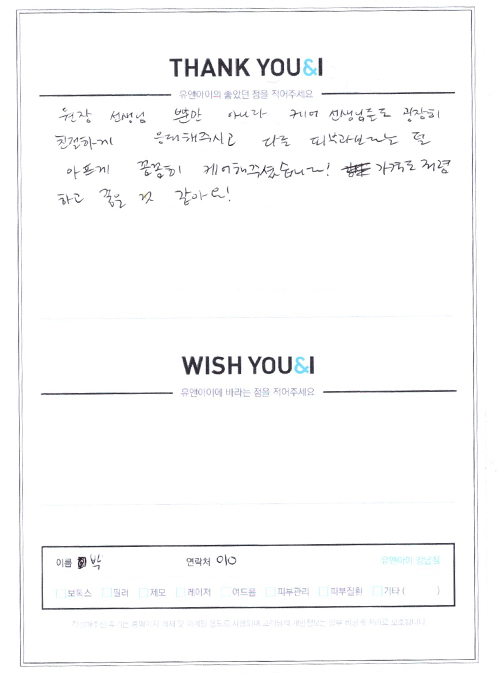 THANK YOU&I
유앤아이의 좋았던 점을 적어주세요
원장 선생님 뿐만 아니라 케어 선생님들도 굉장히
친절하게 응대해주시고 다른 피부과보다는 덜
아프게 꼼꼼히 케어해주셨습니다! 가격도 저렴
하고 좋을 것 같아요!
WISH YOU&I
유앤아이에 바라는 점을 적어주세요
이름 박 연락처 010 유앤아이 강남점
보톡스 필러 제모 레이저 여드름 피부관리 피부질환 기타 ( )